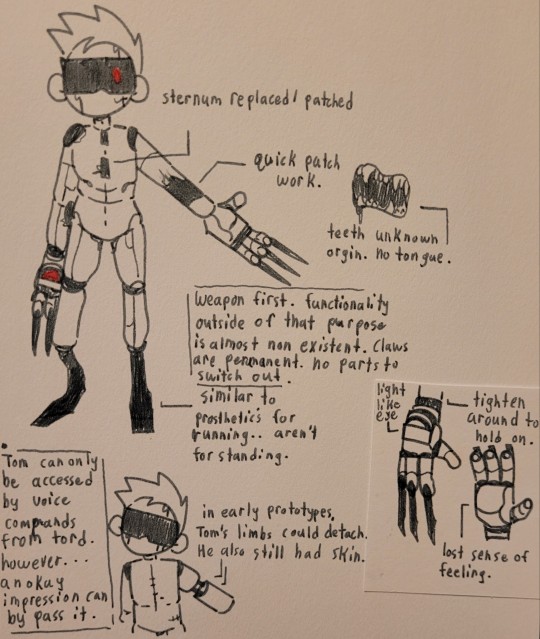 sternum replaced/ patched
quick patch
work.
teeth unknown
orgin. no tongue.
Weapon first. functionality
outside of that purpose
is almost non existent. Claws
are permanent. no parts to
switch out.
similar to
prosthetics for
running.. aren't
for standing.
light
like
eye
tighten
around to
hold on.
lost sense of
feeling.
Tom can only
be accessed
by voice
commands
from tord.
however...
an okay
impression can
by pass it.
in early prototypes,
Tom's limbs could detach.
He also still had skin.